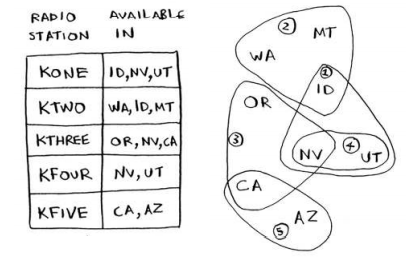 RADIO STATION
AVAILABLE IN
KONE ID,NV,UT
KTWO WA,ID,MT
KTHREE OR,NV,CA
KFOUR NV,UT
KFIVE CA,AZ
2
MT
WA
1
ID
OR
3
NV
4
UT
CA
AZ
5